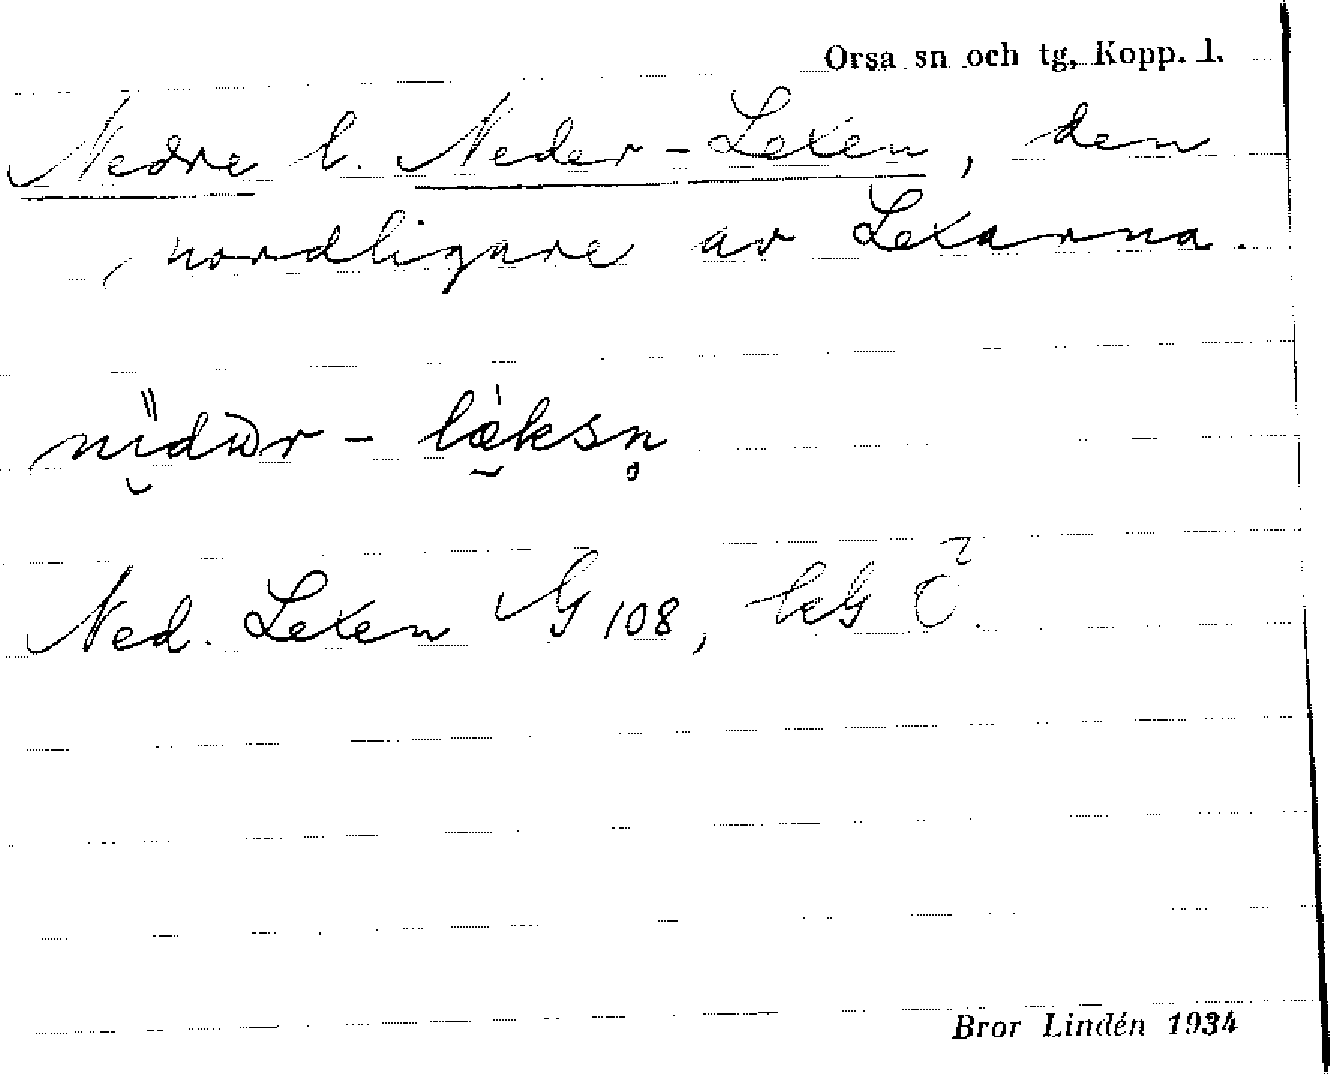 Orsa sn och tg, Kopp. l.
Nedre l. Neder-Lexen, den
nordligare av Lexarna.
nïdωr - læ̀ksn̥
Ned. Lexen G 108, bkG
Bror Lindén 1934